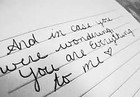 And in case you
were wondering,
You are Everything
to me ♡